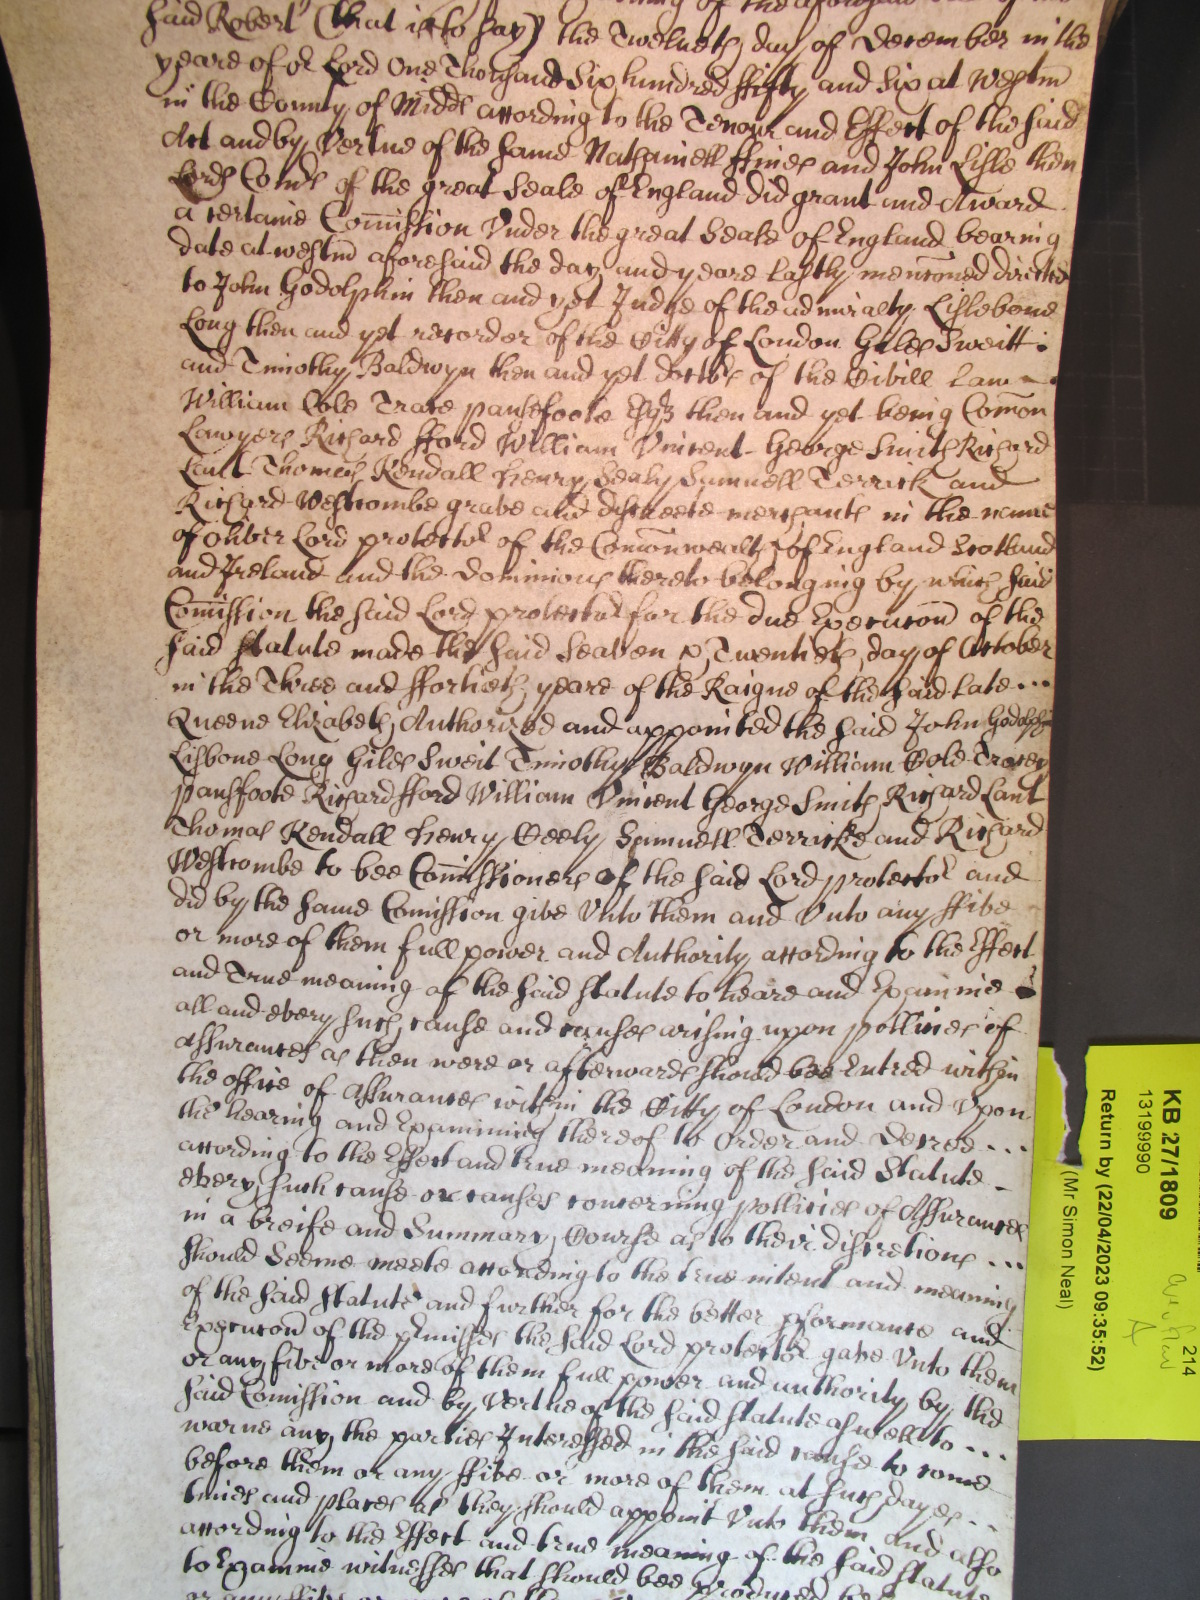 of the aforesaid
said Robert (that is to say) the Twelveth day of December in the
yeare of or Lord One Thousand Six hundred ffifty and Six at Westm̄
in the County of Midds according to the Tenour and Effect of the said
Act and by Vertue of the same Nathaniell ffines and John Lisle then
Lords Com̄rs of the great Seale of England did grant and Award
a certaine Com̄ission Vnder the great Seale of England bearing
date at westm̄ aforesaid the day and yeare lastly menc̄oned directed
to John Godolphin then and yet Judge of the admiralty Lislebone
Long then and yet recorder of the Citty of London Giles Sweitt
and Timothy Baldwyn then and yet doctors of the Civill Law
William Cole Trace pansfoote Esqs then and yet being Com̄on
Lawyers Richard fford William Vincent George Smith Richard
Lant Thomas Kendall henry Sealy Samuell Terrick and
Richard Westcombe grave and discreete merchants in the name
of Oliver Lord protector of the Com̄onwealth of England Scotland
and Ireland and the Dominions thereto belonging by which said
Com̄ission the said Lord protector for the due Execuc̄on of the
said Statute made the said Seaven & Twentieth day of October
in the Three and ffortieth yeare of the Raigne of the said late ...
Queene Elizabeth Authorized and appointed the said John Godolphin
Lisbone Long Giles Sweit Timothy Baldwyn William Cole Tracey
pansfoote Richard fford William Vincent George Smith Richard Lant
Thomas Kendall henry Seely Samuell Terricke and Richard
Westcombe to bee Com̄issioners of the said Lord protector and
did by the same Comission give Vnto them and Vnto any ffive
or more of them full power and Authority according to the Effect
and True meaning of the said Statute to heare and Examine
all and every such cause and causes arising upon pollicies of
Assurances as then were or afterwards should bee Entred within
the office of Assurances within the Citty of London and Vpon
the hearing and Examining thereof to Order and Decree ...
according to the Effect and true meaning of the said Statute
every such cause or causes concerning pollicies of Assurances
in a breife and Summary Course as to their discretions ...
should Seeme meete according to the true intent and meaning
of the said Statute and further for the better pformance and
Execuc̄on of the pmisses the said Lord protector gave Vnto them
or any five or more of them full power and authority by the
said Comission and by Vertue of the said Statute aswell to ...
warne any the parties Interessed in the said cause to come
before them or any ffive or more of them at such dayes ...
times and places as they should appoint Vnto them and also
according to the Effect and true meaning of the said Statute
to Examine witnesses that should bee produced
or any ffive or more of
KB 27/1809
13199990
Return by (22/04/2023 09:35:52)
(Mr Simon Neal)
214
A